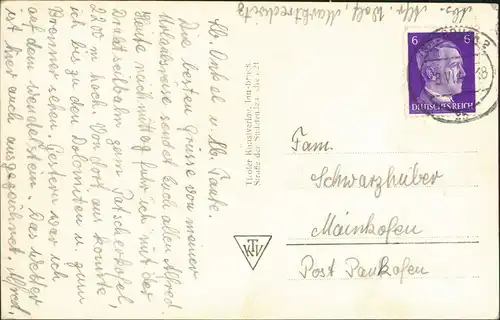 Abs. Mfr. Wolf, Marktredwitz
6 6
DEUTSCHES REICH
Lb. Onkel u. lb. Tante.
Die besten Grüsse von meiner
Urlaubsreise sendet Euch allen Alfred.
Heute nachmittag fuhr ich mit der
Drahtseilbahn zum Patscherkofel,
2200 m hoch. Von dort aus konnte
ich bis zu den Dolomiten u. zum
Brenner sehen. Gestern war ich
auf dem Wendelstein. Das Wetter
ist hier auch ausgezeichnet. Alfred.
Tiroler Kunstverlag, Innsbruck
Straße der Sudetendeutschen 21
KTV
Fam.
Schwarzhuber
Mainkofen
Post Pankofen